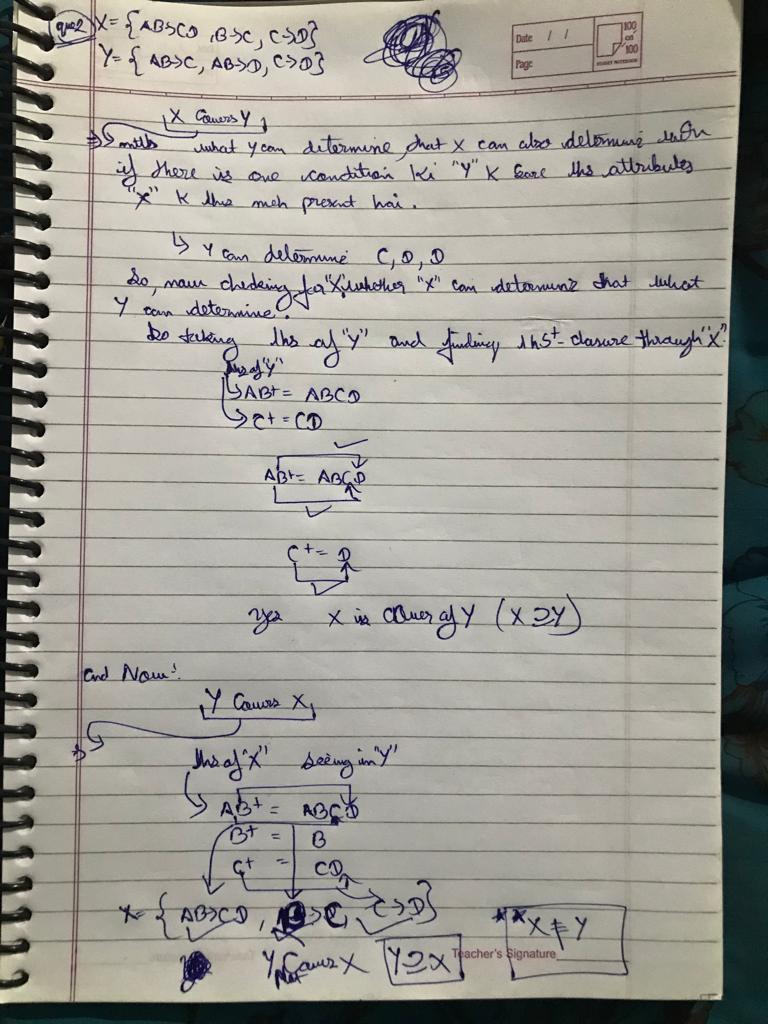 que2 X = { AB→CD , B→C, C→D}
Y = { AB→C, AB→D, C→D}
Date / /
Page
100
on
100
BUDGET NOTEBOOK
X Covers Y
what Y can determine, that X can also determine
if there is one condition Ki "Y" K sare lhs attributes
"X" K lhs meh present hai.
↳ Y can determine C, D, D
So, now checking for "X", whether "X" can determine that what
Y can determine.
So taking lhs of "Y" and finding closure through "X".
lhs of "Y"
↳ AB+ = ABCD
↳ C+ = CD
AB+ = ABCD
C+ = D
Yes X is cover of Y (X ⊇ Y)
and Now:
Y Covers X
lhs of "X" seeing in "Y"
AB+ = ABCD
B+ = B
C+ = CD
X = { AB→CD, B→C, C→D}
Y Not Cover X Y ⊇ X
** X ≠ Y
Teacher's Signature